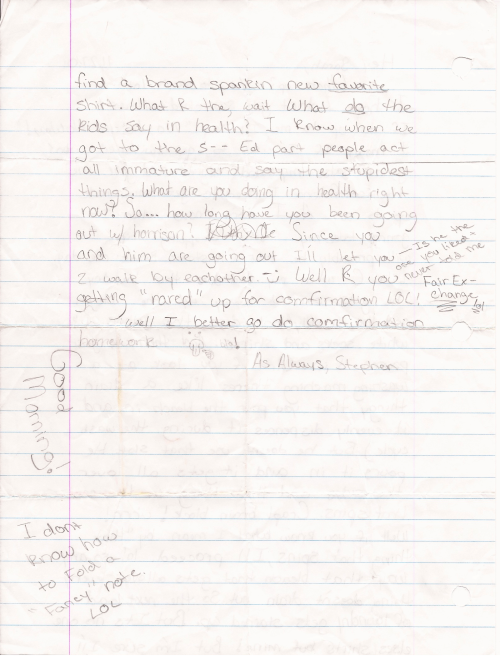 find a brand spankin new favorite
shirt. What R the, wait What do the
kids say in health? I know when we
got to the S-- Ed part people act
all immature and say the stupidest
things. What are you doing in health right
now? So... how long have you been going
out w/ harrison? Since you
and him are going out I'll let you
2 walk by eachother. Well R you
getting "nared" up for comfirmation LOL!
well I better go do comfirmation
homework !
As Always, Stephen
— Is he the
one you liked -
never told me
Fair Ex-
change
Good
Morning!
I dont
know how
to Fold a
"Fancy" note.
LOL